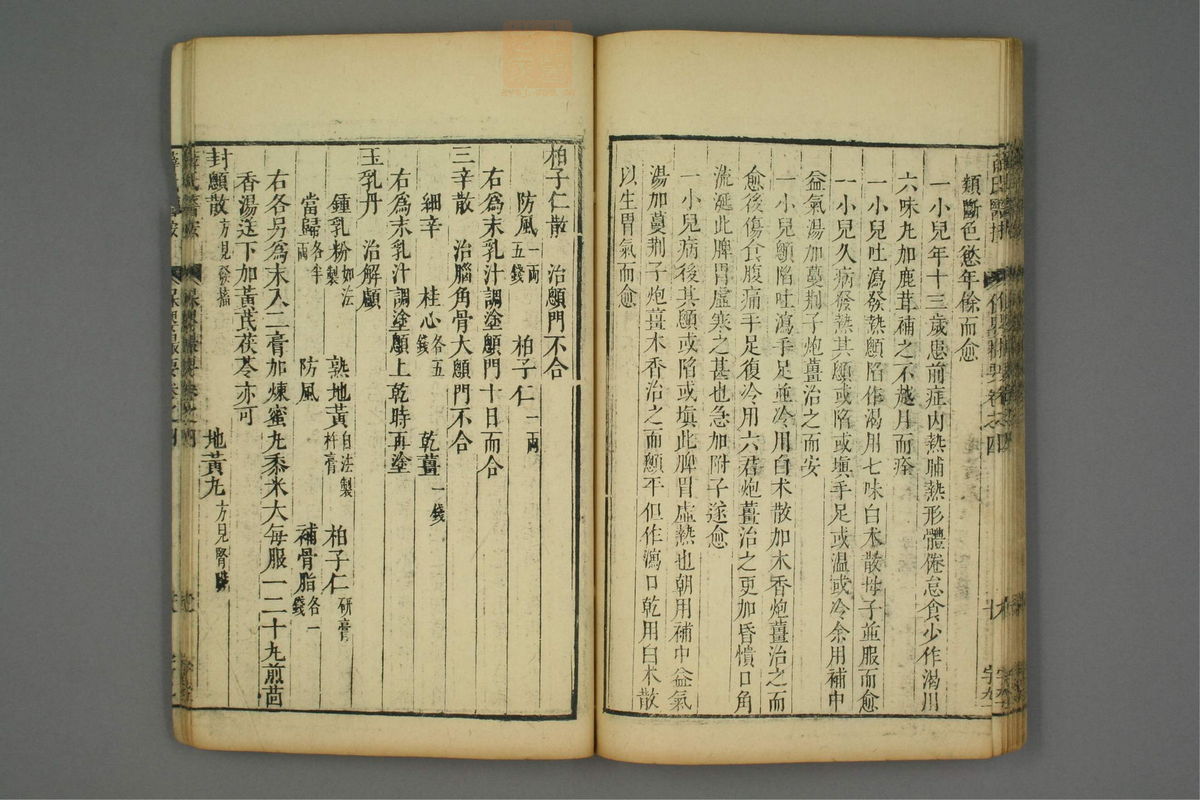 類斷色慾年餘而愈
一小兒年十三歲患前症內熱晡熱形體倦怠食少作渴用
六味丸加鹿茸補之不越月而痊
一小兒吐瀉發熱顖陷作渴用七味白朮散母子並服而愈
一小兒久病發熱其顖或陷或填手足或溫或冷余用補中
益氣湯加蔓荆子炮薑治之而安
一小兒顖陷吐瀉手足並冷用白朮散加木香炮薑治之而
愈後傷食腹痛手足復冷用六君炮薑治之更加昏憒口角
流涎此脾胃虛寒之甚也急加附子遂愈
一小兒病後其顖或陷或填此脾胃虛熱也朝用補中益氣
湯加蔓荆子炮薑木香治之而顖平但作瀉口乾用白朮散
以生胃氣而愈
柏子仁散 治顖門不合
防風一兩五錢 柏子仁一兩
右爲末乳汁調塗顖門十日而合
三辛散 治腦角骨大顖門不合
細辛 桂心各五錢 乾薑一錢
右爲末乳汁調塗顖上乾時再塗
玉乳丹 治解顱
鍾乳粉如法製 熟地黃自法製杵膏 柏子仁研膏
當歸各半兩 防風 補骨脂各一錢
右各另爲末入二膏加煉蜜丸黍米大每服一二十丸煎茴
香湯送下加黃芪茯苓亦可
封顖散方見發搐 地黃丸方見腎